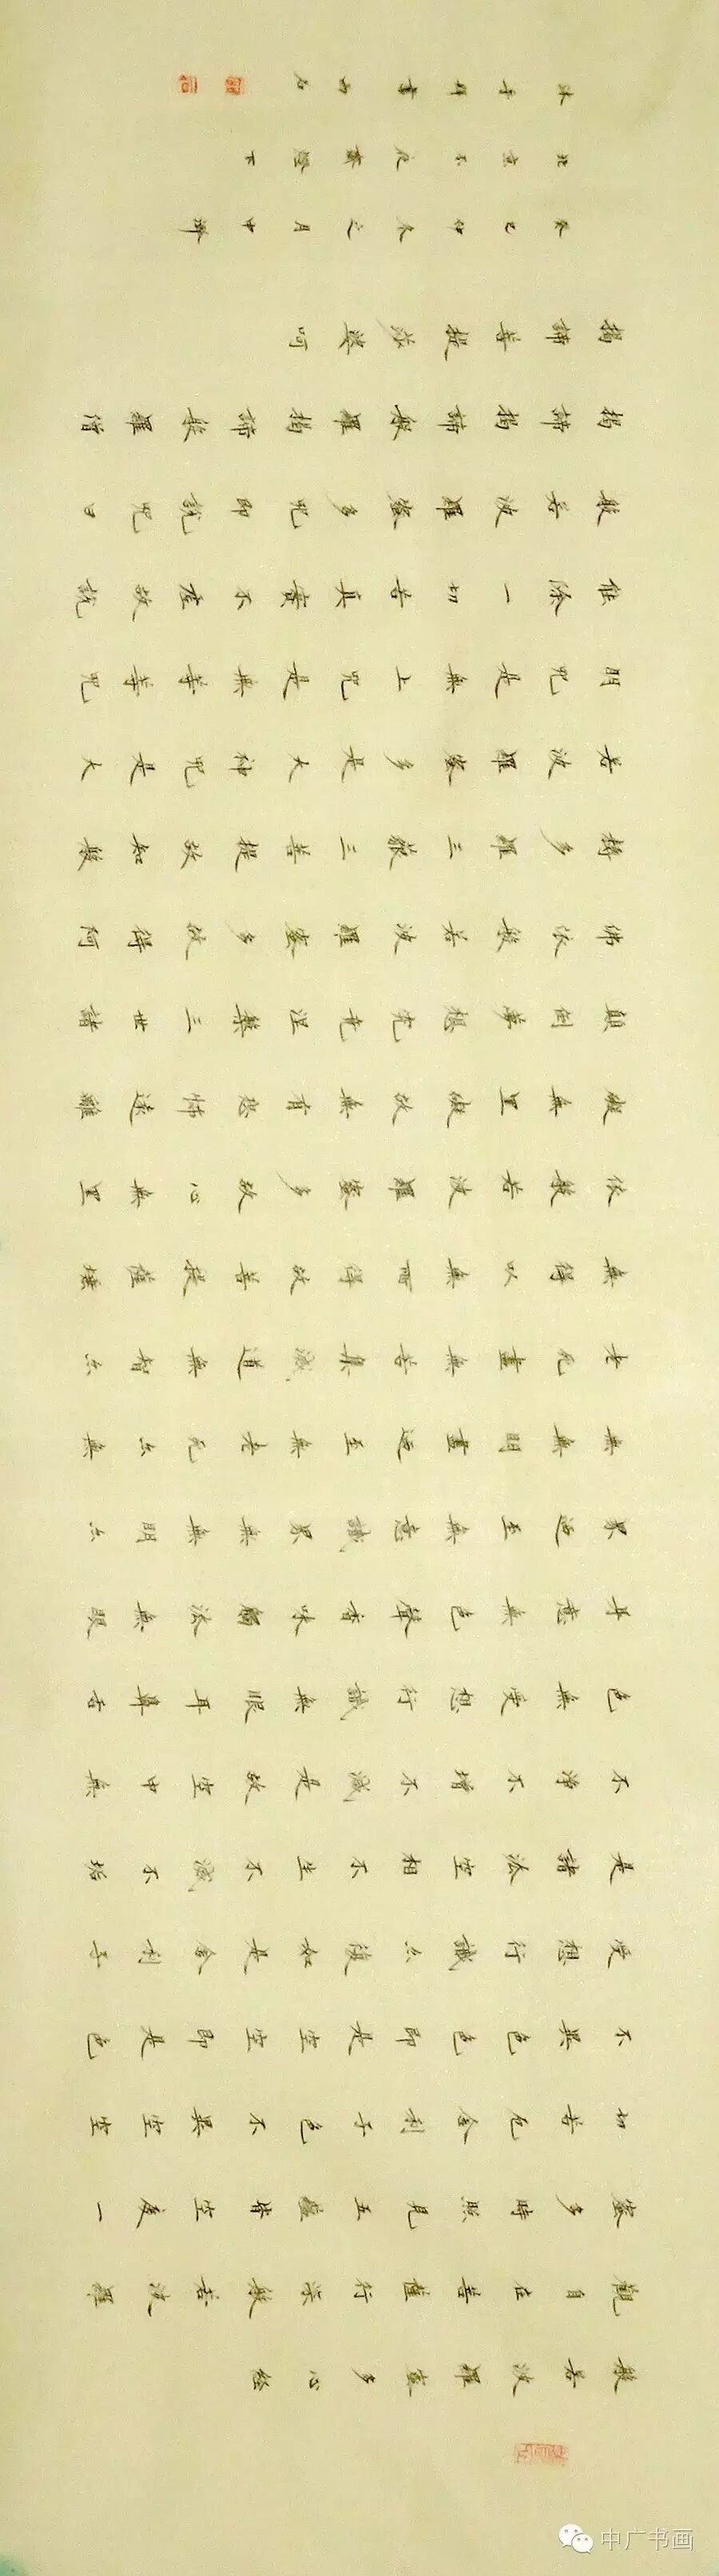 般若波羅蜜多心經
觀自在菩薩行深般若波羅
蜜多時照見五蘊皆空度一
切苦厄舍利子色不異空空
不異色色即是空空即是色
受想行識亦復如是舍利子
是諸法空相不生不滅不垢
不淨不增不減是故空中無
色無受想行識無眼耳鼻舌
身意無色聲香味觸法無眼
界迺至無意識界無無明亦
無無明盡迺至無老死亦無
老死盡無苦集滅道無智亦
無得以無所得故菩提薩埵
依般若波羅蜜多故心無罣
礙無罣礙故無有恐怖遠離
顛倒夢想究竟涅槃三世諸
佛依般若波羅蜜多故得阿
耨多羅三藐三菩提故知般
若波羅蜜多是大神咒是大
明咒是無上咒是無等等咒
能除一切苦真實不虛故說
般若波羅蜜多咒即說咒曰
揭諦揭諦般羅揭諦般羅僧
揭諦菩提莎婆呵
癸巳仲冬之月中澣
北京不足齋燈下
沐手拜書雨石
中广书画